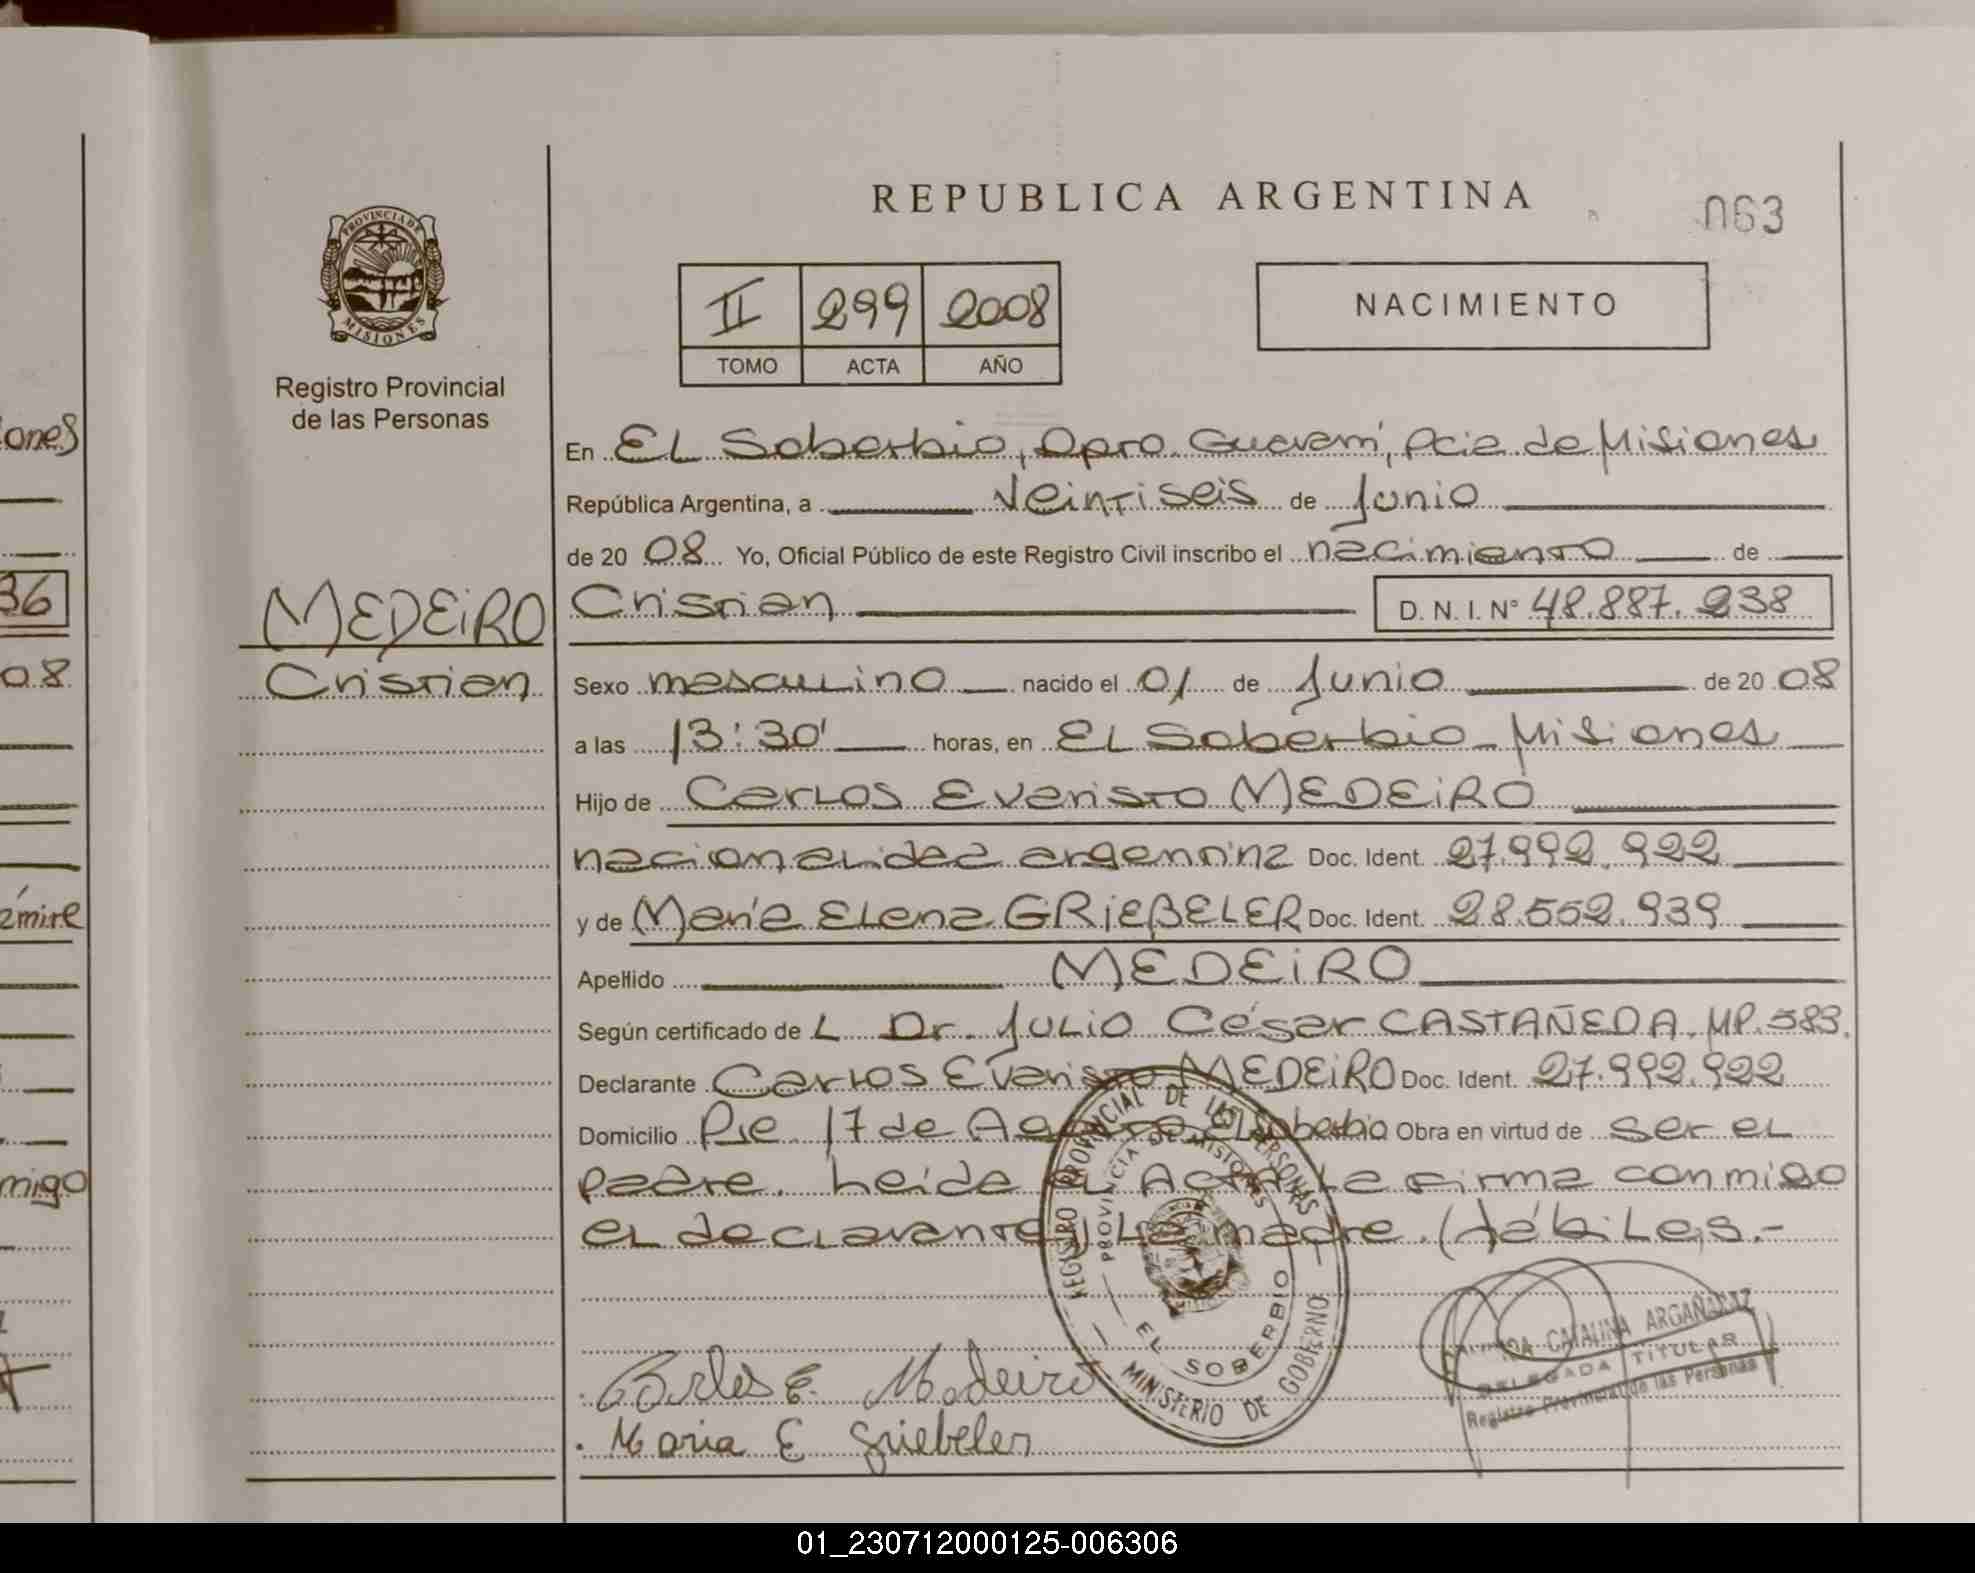 REPUBLICA ARGENTINA
063
PROVINCIA DE MISIONES
Registro Provincial
de las Personas
II 299 2008
TOMO ACTA AÑO
NACIMIENTO
ones
En EL Soberbio, Dpto. Guaraní, Pcia de Misiones
República Argentina, a Veintiseis de Junio
de 2008 Yo, Oficial Público de este Registro Civil inscribo el nacimiento de
36
MEDEIRO
Cristian D. N. I. N° 48.887.238
08
Cristian
Sexo masculino nacido el 01 de Junio de 2008
a las 13:30' horas, en EL Soberbio - Misiones
Hijo de Carlos Evaristo MEDEIRO
nacionalidad argentina Doc. Ident. 27.992.922
y de María Elena GRIEBELER Doc. Ident. 28.552.939
Apellido MEDEIRO
Según certificado de L Dr. Julio César CASTAÑEDA. MP. 583.
Declarante Carlos Evaristo MEDEIRO Doc. Ident. 27.992.922
Domicilio Pje 17 de Agosto EL Soberbio Obra en virtud de ser el
migo
padre. Leída el Acta La firma conmigo
el declarante y La madre. (hábiles.-
REGISTRO PROVINCIAL DE LAS PERSONAS
PROVINCIA DE MISIONES
EL SOBERBIO
MINISTERIO DE GOBIERNO
CATALINA ARGAÑARAZ
DELEGADA TITULAR
Registro Provincial de las Personas
Carlos E. Medeiro
Maria E Griebeler
01_230712000125-006306